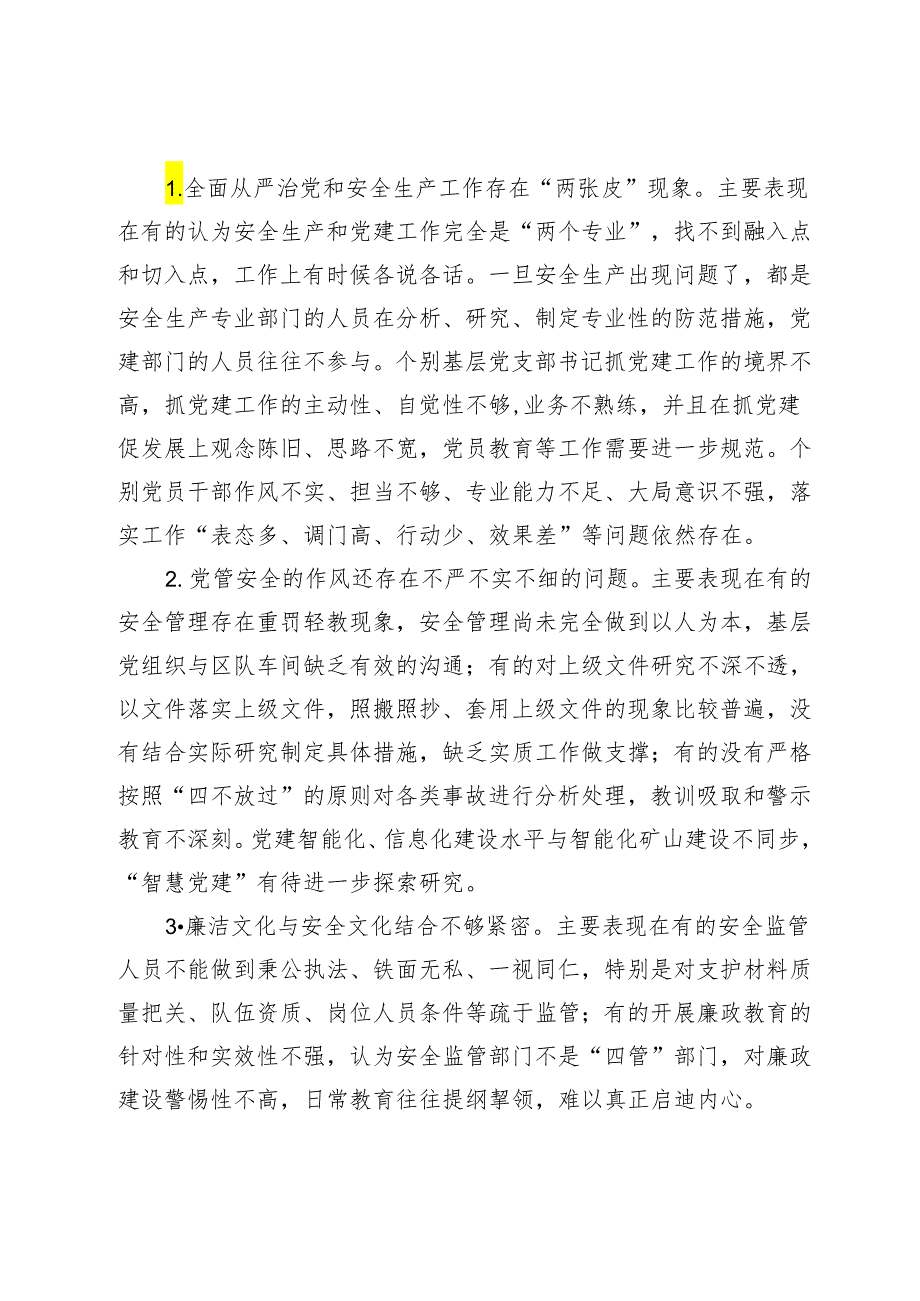 1.全面从严治党和安全生产工作存在“两张皮”现象。主要表现
在有的认为安全生产和党建工作完全是“两个专业”，找不到融入点
和切入点，工作上有时候各说各话。一旦安全生产出现问题了，都是
安全生产专业部门的人员在分析、研究、制定专业性的防范措施，党
建部门的人员往往不参与。个别基层党支部书记抓党建工作的境界不
高，抓党建工作的主动性、自觉性不够,业务不熟练，并且在抓党建
促发展上观念陈旧、思路不宽，党员教育等工作需要进一步规范。个
别党员干部作风不实、担当不够、专业能力不足、大局意识不强，落
实工作“表态多、调门高、行动少、效果差”等问题依然存在。
2. 党管安全的作风还存在不严不实不细的问题。主要表现在有的
安全管理存在重罚轻教现象，安全管理尚未完全做到以人为本，基层
党组织与区队车间缺乏有效的沟通；有的对上级文件研究不深不透，
以文件落实上级文件，照搬照抄、套用上级文件的现象比较普遍，没
有结合实际研究制定具体措施，缺乏实质工作做支撑；有的没有严格
按照“四不放过”的原则对各类事故进行分析处理，教训吸取和警示
教育不深刻。党建智能化、信息化建设水平与智能化矿山建设不同步，
“智慧党建”有待进一步探索研究。
3•廉洁文化与安全文化结合不够紧密。主要表现在有的安全监管
人员不能做到秉公执法、铁面无私、一视同仁，特别是对支护材料质
量把关、队伍资质、岗位人员条件等疏于监管；有的开展廉政教育的
针对性和实效性不强，认为安全监管部门不是“四管”部门，对廉政
建设警惕性不高，日常教育往往提纲挈领，难以真正启迪内心。